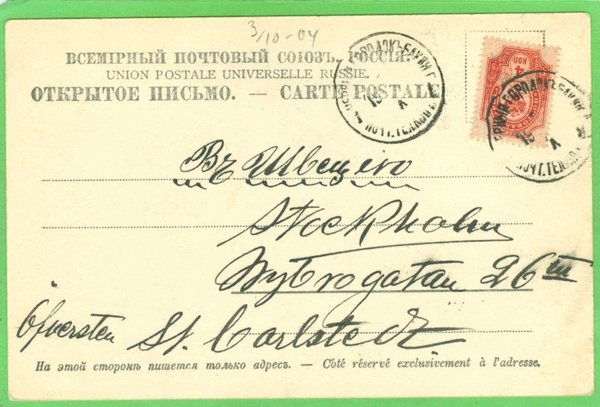 3/10-04
ВСЕМІРНЫЙ ПОЧТОВЫЙ СОЮЗЪ. РОССІЯ.
UNION POSTALE UNIVERSELLE RUSSIE.
ОТКРЫТОЕ ПИСЬМО. — CARTE POSTALE
4 КОП
Въ Швецію
Stockholm
Nybrogatan 26 III
Öfversten St. Carlstedt
На этой сторонѣ пишется только адресъ. — Côté réservé exclusivement à l'adresse.